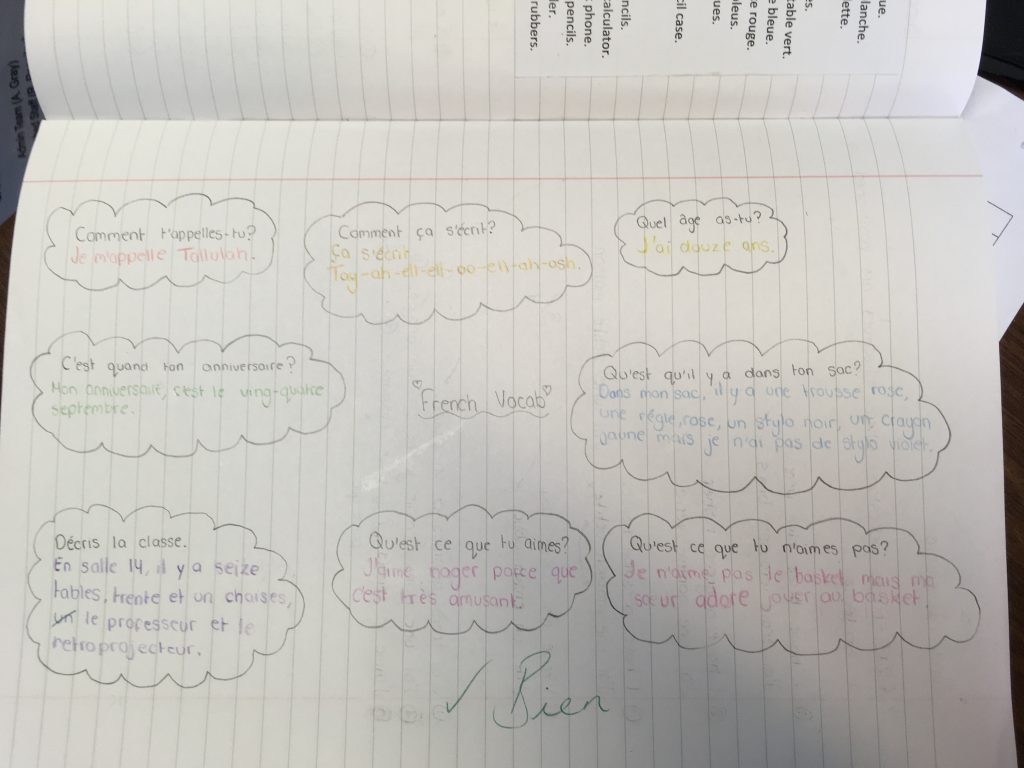 ncils.
calculator.
phone.
pencils.
ier.
rubbers.
ue.
lanche.
lette.
table vert.
e bleue.
rs.
re rouge.
oleus.
ues.
cil case.
Comment t'appelles-tu?
Je m'appelle Tallulah.
Comment ça s'écrit?
Ça s'écrit
Tay-ah-ell-ell-oo-en-ah-ash.
Quel age as-tu?
J'ai douze ans.
C'est quand ton anniversaire?
Mon anniversair, c'est le ving-quatre
septembre.
French Vocab
Qu'est qu'il y a dans ton sac?
Dans mon sac, il y a une trousse rose,
une régle rose, un stylo noir, un crayon
jaune mais je n'ai pas de stylo violet.
Décris la classe.
En salle 14, il y a seize
tables, trente et un chaises,
un le professeur et le
retroprojecteur.
Qu'est ce que tu aimes?
J'aime nager parce que
c'est très amusant.
Qu'est ce que tu n'aimes pas?
Je n'aime pas le basket, mais ma
sœur adore jouer au basket.
Bien